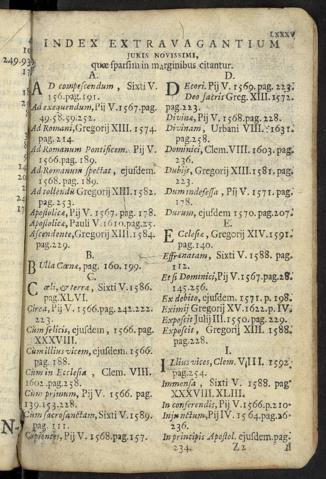 LXXXV
INDEX EXTRAVAGANTIUM
JURIS NOVISSIMI,
quæ sparsim in marginibus citantur.
A.
AD compescendum, Sixti V.
156. pag. 191.
Ad exequendum, Pij V. 1567. pag.
49. 58. 59. 252.
Ad Romani, Gregorij XIII. 1574.
pag. 214.
Ad Romanum Pontificem. Pij V.
1566. pag. 189.
Ad Romanum spectat, ejusdem.
1568. pag. 189.
Ad tollendū Gregorij XIII. 1582.
pag. 253.
Apostolicæ, Pij V. 1567. pag. 178.
Apostolicæ, Pauli V. 1610. pag. 25.
Ascendente, Gregorij XIII. 1584.
pag. 229.
B.
BUlla Cœnæ, pag. 160. 199.
C.
CŒli, & terræ, Sixti V. 1586.
pag. XLVI.
Circa, Pij V. 1566. pag. 242. 222.
223.
Cum felicis, ejusdem, 1566. pag.
XXXVIII.
Cum illius vicem, ejusdem, 1566.
pag. 188.
Cum in Ecclesia, Clem. VIII.
1602. pag. 258.
Cum primum, Pij V. 1566. pag.
139. 153. 228.
Cum sacrosanctam, Sixti V. 1589.
pag. 111.
Cupientes, Pij V. 1568. pag. 157.
D.
DEcori. Pij V. 1569. pag. 223.
Deo sacris Greg. XIII. 1572.
pag. 223.
Divinæ, Pij V. 1568. pag. 228.
Divinam, Urbani VIII. 1631.
pag. 258.
Dominici, Clem. VIII. 1603. pag.
236.
Dubijs, Gregorij XIII. 1581. pag.
223.
Dum indefessa, Pij V. 1571. pag.
178.
Durum, ejusdem 1570. pag. 207.
E.
ECclesiæ, Gregorij XIV. 1591.
pag. 140.
Effrænatam, Sixti V. 1588. pag.
112.
Et si Dominici, Pij V. 1567. pag. 28.
145. 256.
Ex debito, ejusdem, 1571. p. 198.
Eximij Gregorij XV. 1622. p. IV.
Exposcit Julij III. 1550. pag. 229.
Exposcit, Gregorij XIII. 1588.
pag. 228.
I.
ILlius vices, Clem. VIII. 1592.
pag. 254.
Immensa, Sixti V. 1588. pag.
XXXVIII. XLIII.
In conferendis, Pij V. 1566. p. 210.
Injunctum, Pij IV. 1564. pag. 26.
236.
In principis Apostol. ejusdem. pag.
234.
Z 2